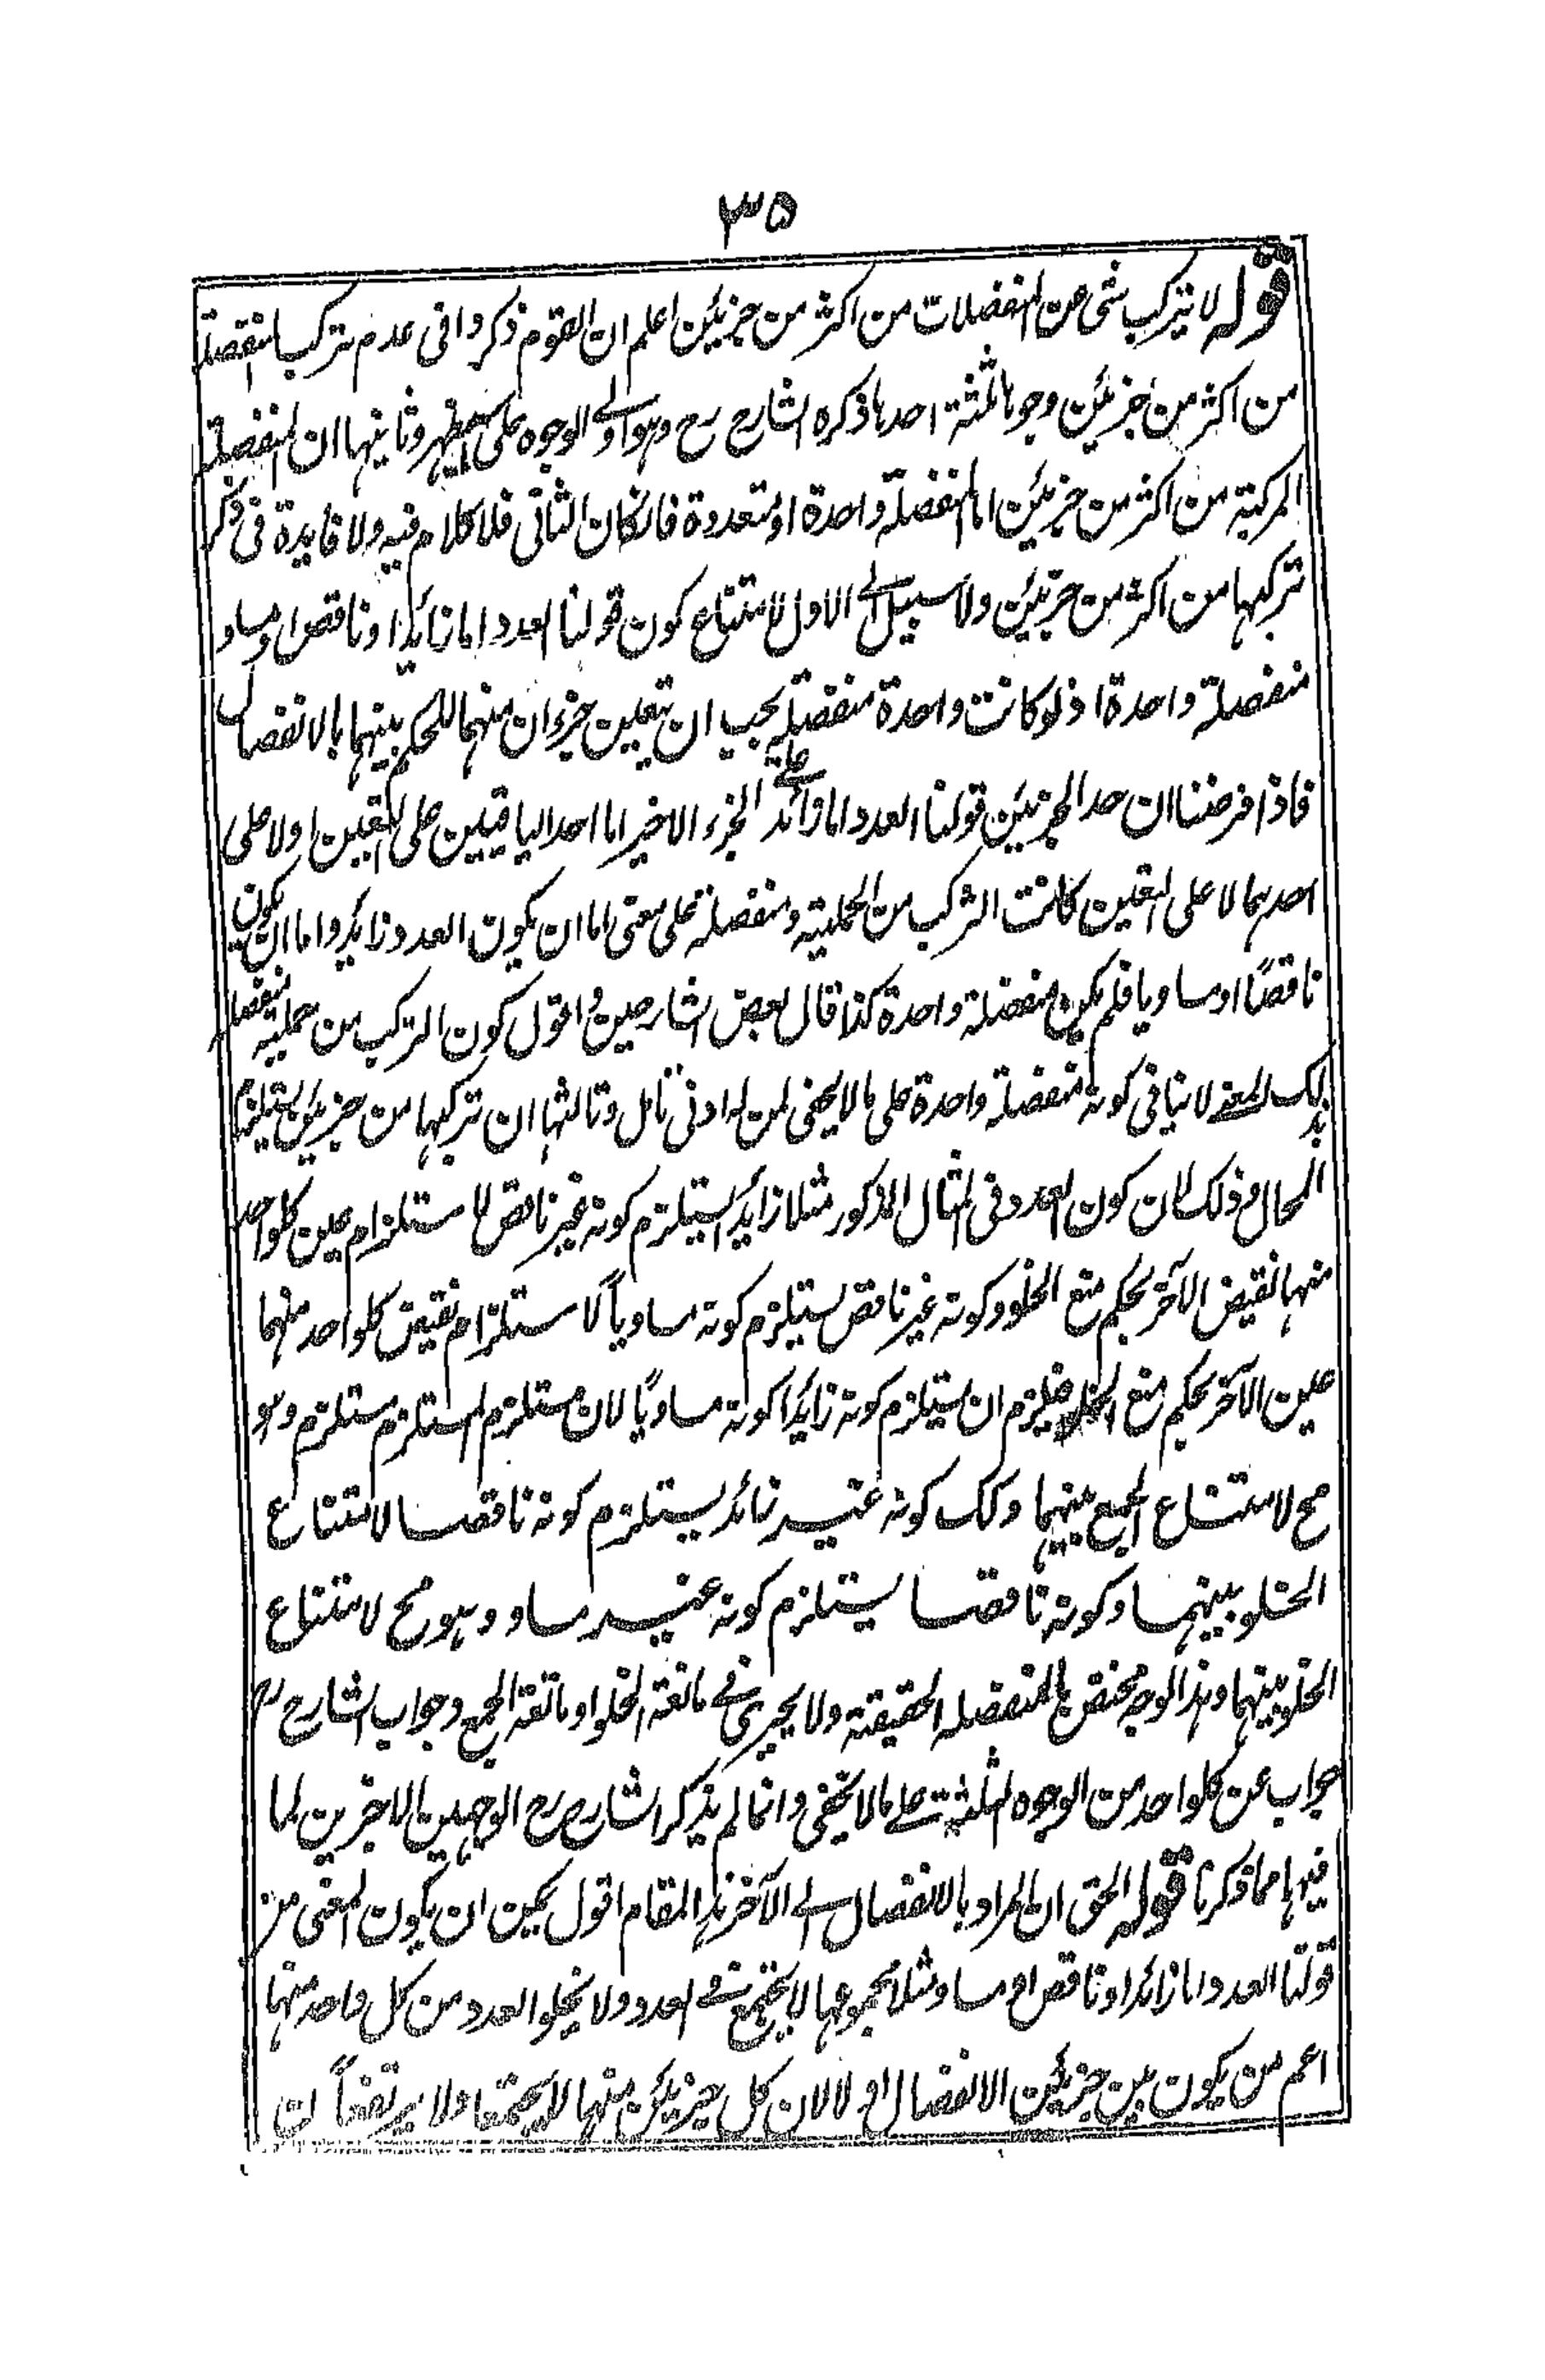 ٣٥
قوله لا يتركب شى من المنفصلات من اكثر من جزئين اعلم ان القوم ذكروا فى عدم تركب المنفصلة
من اكثر من جزئين وجوها ثلثة احدها ذكره الشارح رح وهو اولى الوجوه على وثانيها ان المنفصلة
المركبة من اكثر من جزئين اما منفصلة واحدة او متعددة فانكان الثانى فلا كلام فيه ولا فايدة فى ذكر
تركبها من اكثر من جزئين ولا سبيل الى الاول لامتناع كون قولنا العدد اما زائدا او ناقص او مساو
منفصلة واحدة اذ لو كانت واحدة منفصلة يجب ان تتعين جزءان منهما للحكم بينهما بالانفصال
فاذا فرضنا ان احد الجزئين قولنا العدد اما زائد الجزء الاخير اما احد الباقيين على التعين اولا على
احدهما لا على التعين كانت التركب من الحملية ومنفصلة على معنى اما ان يكون العدد زايد واما ان يكون
ناقصًا او مساويا فلم يكن منفصلة واحدة كذا قال بعض الشارحين واقول كون التركب من حملية منفصلة
بذلك المعنى لا ينافى كونه منفصلة واحدة على ما لا يخفى لمن له ادنى تامل وثالثها ان تركبها من جزئين يستلزم
المحال وذلك لان كون العدد فى المثال المذكور مثلا زايدا يستلزم كونه غير ناقص لاستلزام عين كلواحد
منهما نقيض الآخر بحكم منع الخلو وكونه غير ناقص يستلزم كونه مساوياً لاستلزام نقيض كلواحد منهما
عين الآخر بحكم منع الخلو فيلزم ان يستلزم كونه زايدا كونه مساويًا لان مستلزم المستلزم مستلزم وهو
مح لامتناع الجمع بينهما وكك كونه غير زائد يستلزم كونه ناقصا لامتناع
الخلو بينهما وكونه ناقصا يستلزم كونه غير مساو وهو مح لامتناع
الخلو بينهما وهذا الوجه مختص بالمنفصله الحقيقية ولا يجرى فى مانعة الخلو او مانعة الجمع وجواب الشارح رح
جواب عن كلواحد من الوجوه الثلثة على ما لا يخفى وانما لم يذكر الشارح رح الوجهين الاخرين لما
فيها مما ذكرنا قوله الحق ان المراد بالانفصال الى الآخر هذا المقام اقول يمكن ان يكون المعنى من
قولنا العدد اما زائدا او ناقص او مساو مثلا مجموعها لا يجتمع فى العدد ولا يخلو العدد من كل واحد منهما
اعم من يكون بين جزئين الانفصال او لا لان كل جزئين منهما لا يجتمعا ولا يرتفعاً ن